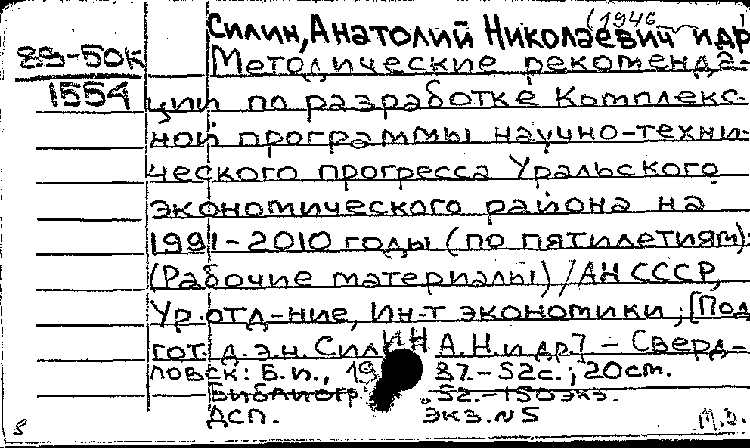 (1946
Силин, Анатолий Николаевич и др
88-50к
1554
Методические рекоменда-
ции по разработке Комплекс-
ной программы научно-техни-
ческого прогресса Уральского
экономического района на
1991-2010 годы (по пятилетиям):
(Рабочие материалы) / АН СССР,
Ур. отд-ние, Ин-т экономики; [Под
гот. д.э.н. Силин А.Н. и др] - Сверд-
ловск: Б.и., 19 87.-52с.; 20см.
Библиогр. 52.-150экз.
ДСП. Экз. N5